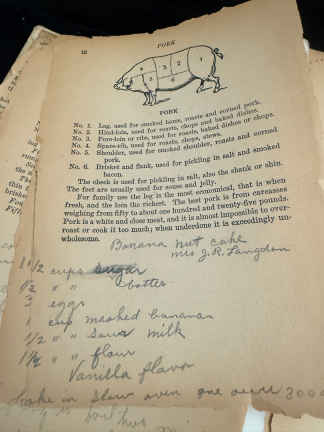 12 PORK
PORK
No. 1. Leg, used for smoked hams, roasts and corned pork.
No. 2. Hind-loin, used for roasts, chops and baked dishes.
No. 3. Fore-loin or rib, used for roasts, baked dishes or chops.
No. 4. Spare-rib, used for roasts, chops, stews.
No. 5. Shoulder, used for smoked shoulder, roasts and corned
pork.
No. 6. Brisket and flank, used for pickling in salt and smoked
bacon.
The cheek is used for pickling in salt, also the shank or shin.
The feet are usually used for souse and jelly.
For family use the leg is the most economical, that is when
fresh, and the loin the richest. The best pork is from carcasses
weighing from fifty to about one hundred and twenty-five pounds.
Pork is a white and close meat, and it is almost impossible to over-
roast or cook it too much; when underdone it is exceedingly un-
wholesome.
Banana nut cake
Mrs J.R. Langdon
1 1/2 cups sugar
1/2 " " butter
3 eggs
1 cup mashed bananas
1/2 " " sour milk
1 1/2 " " flour
Vanilla flavor
Bake in slow oven one 300